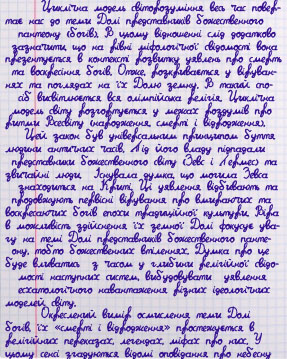 Циклічна модель світорозуміння весь час поверт-
тає нас до теми Долі представників божественного
пантеону (богів). В цьому відношенні слід додатково
зазначити, що на рівні міфологічної свідомості вона
презентується в контексті розвитку уявлень про смерть
та воскресіння богів. Отже, розкривається у віруван-
нях та поглядах на їх Долю земну. В такий спо-
сіб висвітлюється вся олімпійська релігія. Циклічна
модель світу розгортується у межах роздумів про
ритми Всесвіту (народження, смерті і відродження).
Цей закон був універсальним принципом буття
людини античних часів. Під його владу підпадали
представники божественного світу (Зевс і Гермес) та
звичайні люди. Існувала думка, що могила Зевса
знаходиться на Криті. Ці уявлення відбивають та
продовжують первісні вірування про вмираючих та
воскресаючих богів епохи традиційної культури. Віра
в можливість здійснення їх земної Долі фокусує ува-
гу на темі Долі представників божественного панте-
ону, тобто божественних втіленнях. Думка про це
буде виникати з часом у глибини релігійної свідо-
мості наступних систем, вибудовувати уявлення
есхатологічного навантаження різних ідеологічних
моделей світу.
Окреслений вимір осмислення теми Долі
богів, їх «смерті і відродження» простежується в
релігійних переказах, легендах, міфах про них. У
цьому сенсі згадуються відомі оповідання про небесну